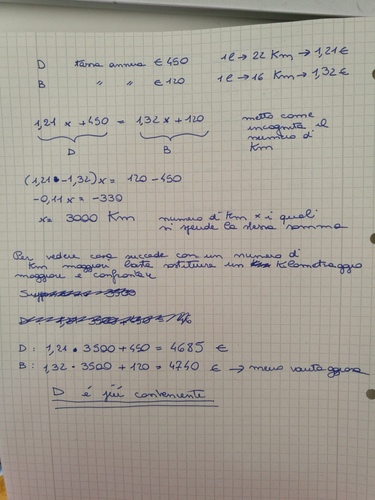 D tassa annua € 450 1l → 22 Km → 1,21€
B " " € 120 1l → 16 Km → 1,32 €
1,21 x + 450 = 1,32 x + 120
D B
metto come
incognita il
numero di
Km
(1,21 - 1,32) x = 120 - 450
-0,11 x = -330
x = 3000 Km numero di Km x i quali
si spende la stessa somma
Per vedere cosa succede con un numero di
Km maggiori basta sostituire un Kilometraggio
maggiore e confrontare
D : 1,21 • 3500 + 450 = 4685 €
B : 1,32 • 3500 + 120 = 4740 € → meno vantaggiosa
D é più conveniente